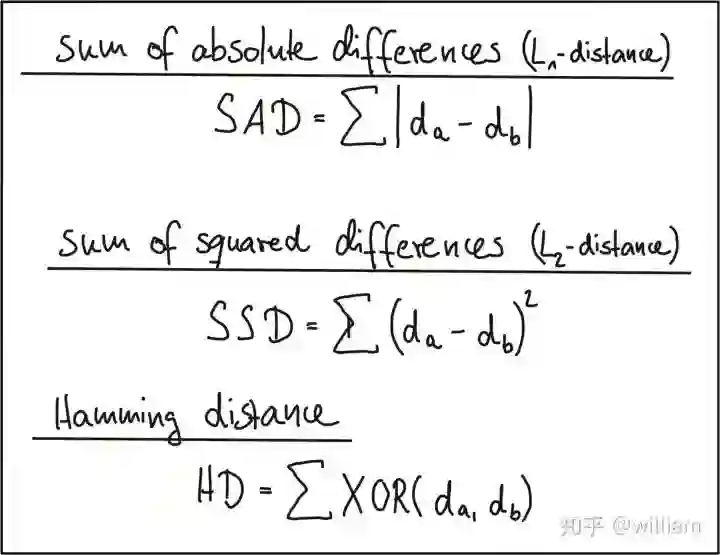 Sum of absolute differences (L₁-distance)
SAD = ∑|dₐ - d_b|
Sum of squared differences (L₂-distance)
SSD = ∑(dₐ - d_b)²
Hamming distance
HD = ∑XOR(dₐ, d_b)
知乎 @william